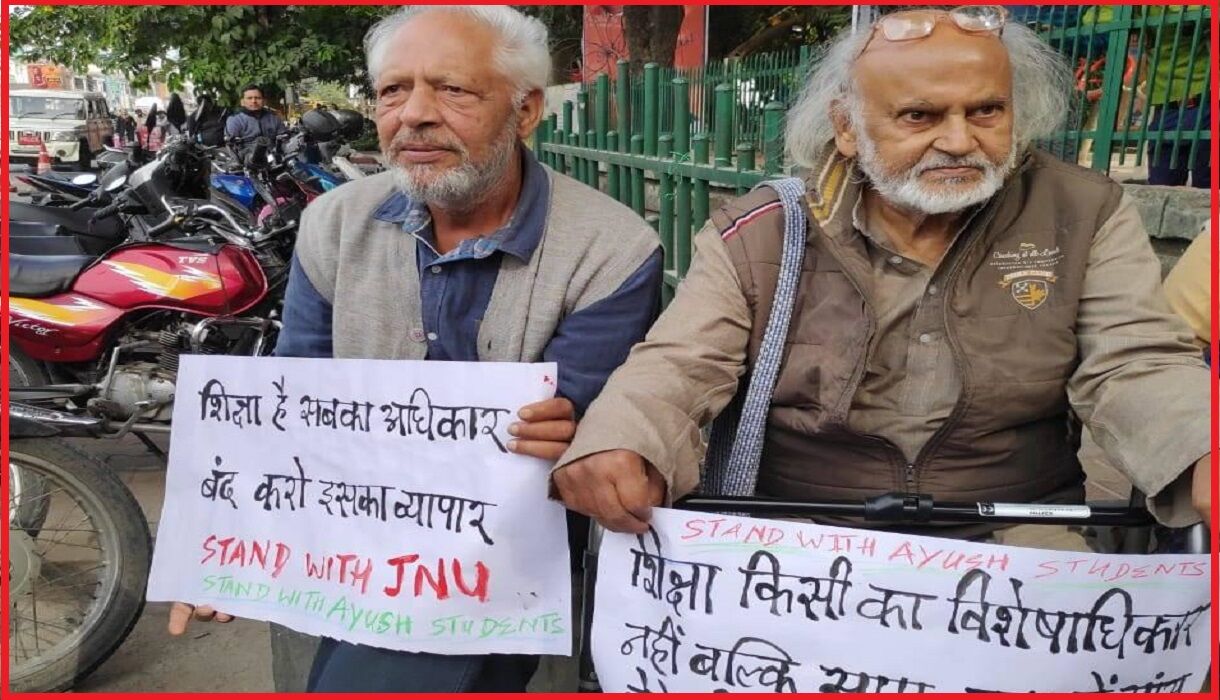 शिक्षा है सबका अधिकार
बंद करो इसका व्यापार
STAND WITH JNU
STAND WITH AYUSH STUDENTS
STAND WITH AYUSH STUDENTS
शिक्षा किसी का विशेषाधिकार
नहीं बल्कि
TVS
Victor